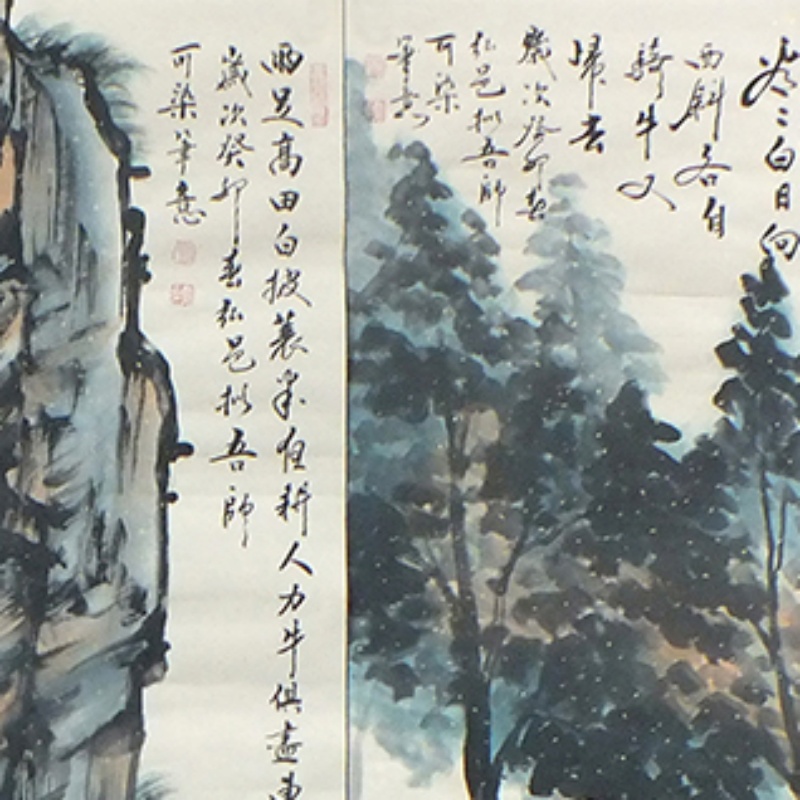 看〻白日向
西斜各自
騎牛又
歸去
歲次癸卯春
弘邑拟吾師
可染
筆意
雨足高田白披蓑半夜耕人力牛俱盡東
歲次癸卯春弘邑拟吾師
可染筆意